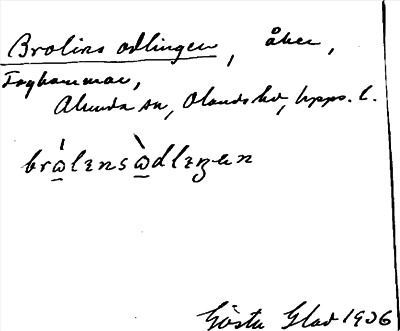 Brolins odlingen, åker,
Foghammar,
Alunda sn, Olands hd, Upps. l.
brώ̲lɪnsὼ̲dlɪŋɛn
Gösta Glad 1906